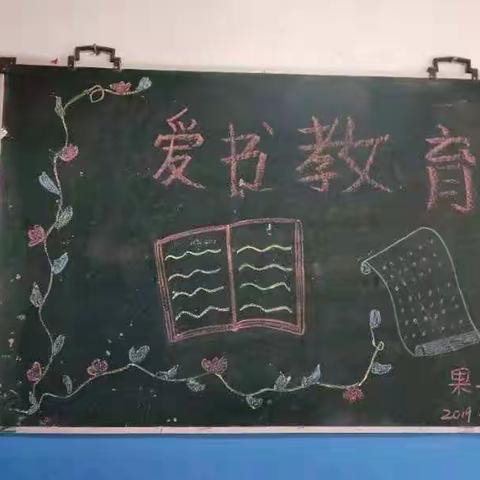 爱书教育
果
2019